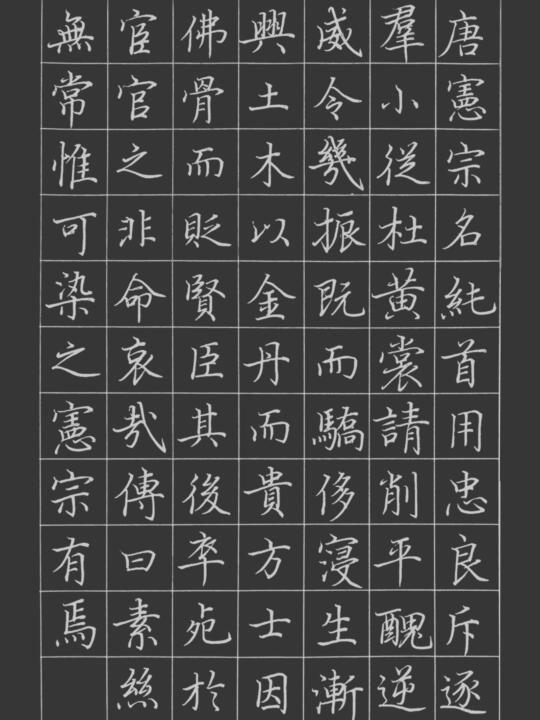 唐憲宗名純首用忠良斥逐
羣小從杜黃裳請削平醜逆
威令幾振既而驕侈寖生漸
興土木以金丹而貴方士因
佛骨而貶賢臣其後卒宛於
宦官之非命哀哉傳曰素絲
無常惟可染之憲宗有焉